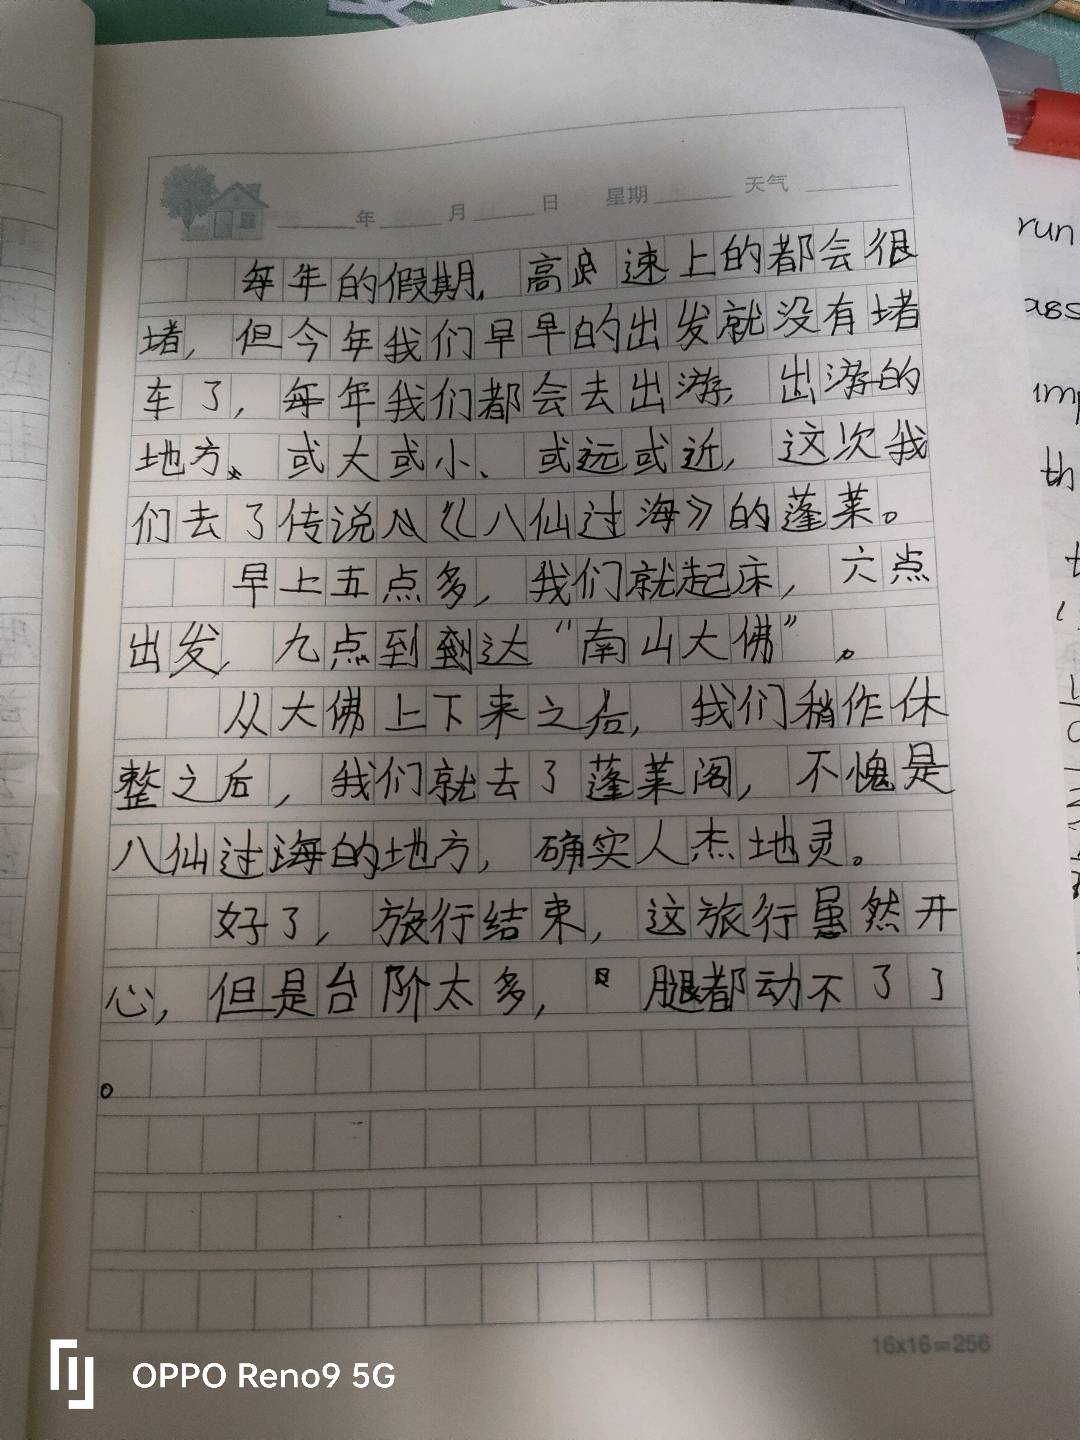 年 月 日 星期 天气
每年的假期，高速上的都会很
堵，但今年我们早早的出发就没有堵
车了，每年我们都会去出游，出游的
地方、或大或小、或远或近，这次我
们去了传说《八仙过海》的蓬莱。
早上五点多，我们就起床，六点
出发，九点到到达“南山大佛”。
从大佛上下来之后，我们稍作休
整之后，我们就去了蓬莱阁，不愧是
八仙过海的地方，确实人杰地灵。
好了，旅行结束，这旅行虽然开
心，但是台阶太多，腿都动不了了
。
16x16=256
run
th
OPPO Reno9 5G